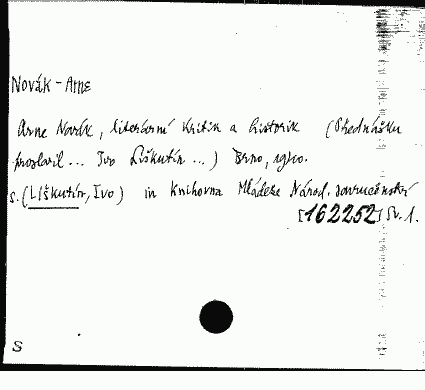 Novák - Arne
Arne Novák, literární kritik a historik (Přednášku
proslovil ... Ivo Liškutín ...) Brno,
s. (Liškutín, Ivo) in Knihovna Mládeže Národ.
[162252] Sv. 1.
S